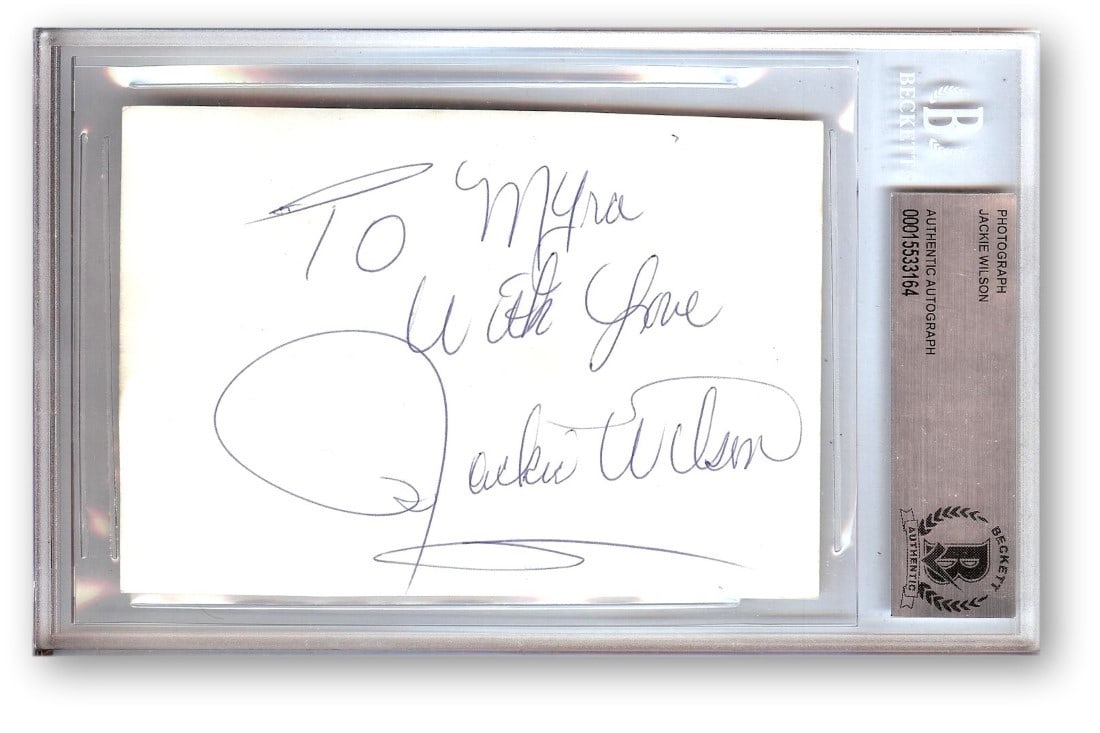 To Myra
With Love
Jackie Wilson
B
BECKETT
PHOTOGRAPH
JACKIE WILSON
AUTHENTIC AUTOGRAPH
00015533164
BECKETT
B
AUTHENTIC